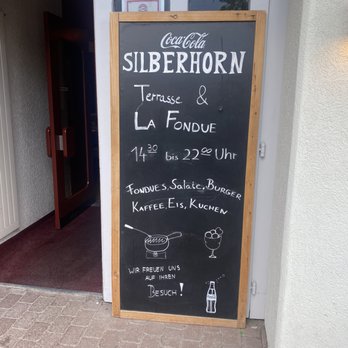 Coca-Cola
SILBERHORN
Terrasse &
LA FONDUE
14³⁰ bis 22⁰⁰ Uhr
FONDUES, Salate, BURGER
KAFFEE, EIS, KUCHEN
WIR FREUEN UNS
AUF IHREN
BESUCH!